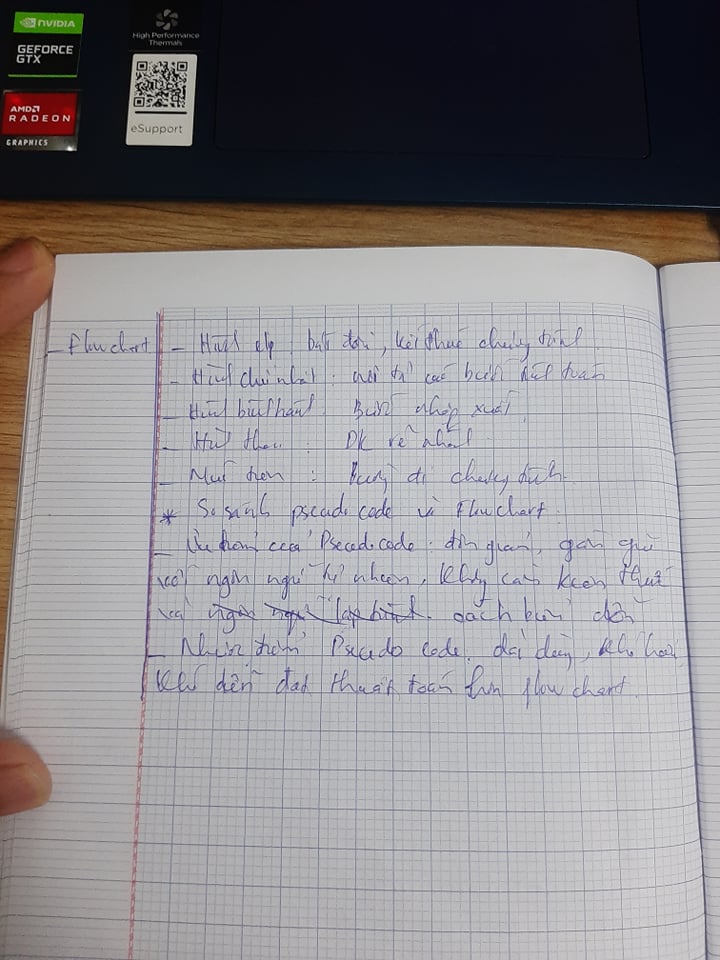 NVIDIA
GEFORCE
GTX
AMD
RADEON
GRAPHICS
High Performance
Thermals
eSupport
- Flowchart
- Hình elip : bắt đầu, kết thúc chương trình
- Hình chữ nhật : các bước tính toán
- Hình bình hành : Bước nhập xuất
- Hình thoi : ĐK rẽ nhánh
- Mũi tên : Hướng đi chương trình
* So sánh pseudo code và Flowchart
- Ưu điểm của Pseudocode : đơn giản, gần gũi
với ngôn ngữ tự nhiên, không cần kiến thức
về cách
- Nhược điểm Pseudo code dài dòng, khó hơn
khi diễn đạt thuật toán flowchart.